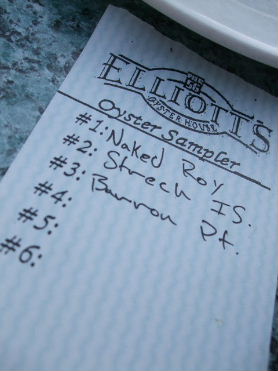 ELLIOTT'S
OYSTER HOUSE
Oyster Sampler
#1: Naked Roy
#2: Strech IS.
#3: Barron Pt.
#4:
#5:
#6: